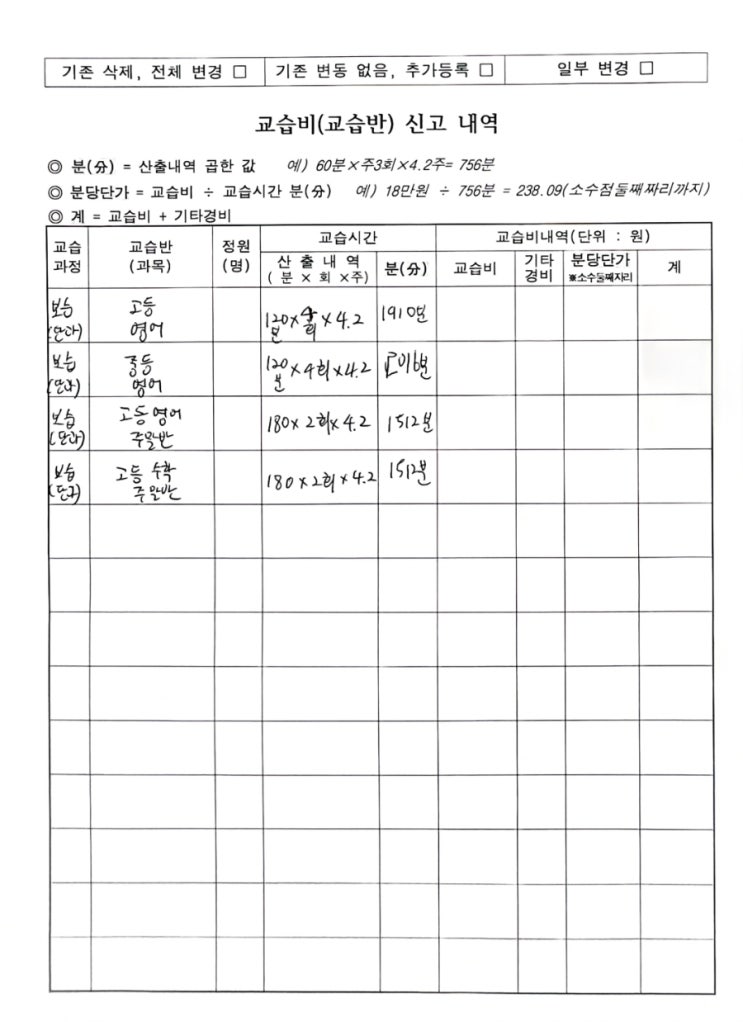 기존 삭제, 전체 변경 □ 기존 변동 없음, 추가등록 □ 일부 변경 □
교습비(교습반) 신고 내역
◎ 분(分) = 산출내역 곱한 값 예) 60분×주3회×4.2주= 756분
◎ 분당단가 = 교습비 ÷ 교습시간 분(分) 예) 18만원 ÷ 756분 = 238.09(소수점둘째짜리까지)
◎ 계 = 교습비 + 기타경비
교습 과정 교습반 (과목) 정원 (명) 교습시간 교습비내역(단위 : 원)
산 출 내 역 ( 분 × 회 ×주) 분(分) 교습비 기타 경비 분당단가 ※소수둘째자리 계
보습 (단과) 고등 영어 120분×4회×4.2 1910분
보습 (단과) 중등 영어 120분×4회×4.2 2016분
보습 (단과) 고등영어 주말반 180×2회×4.2 1512분
보습 (단과) 고등 수학 주말반 180×2회×4.2 1512분